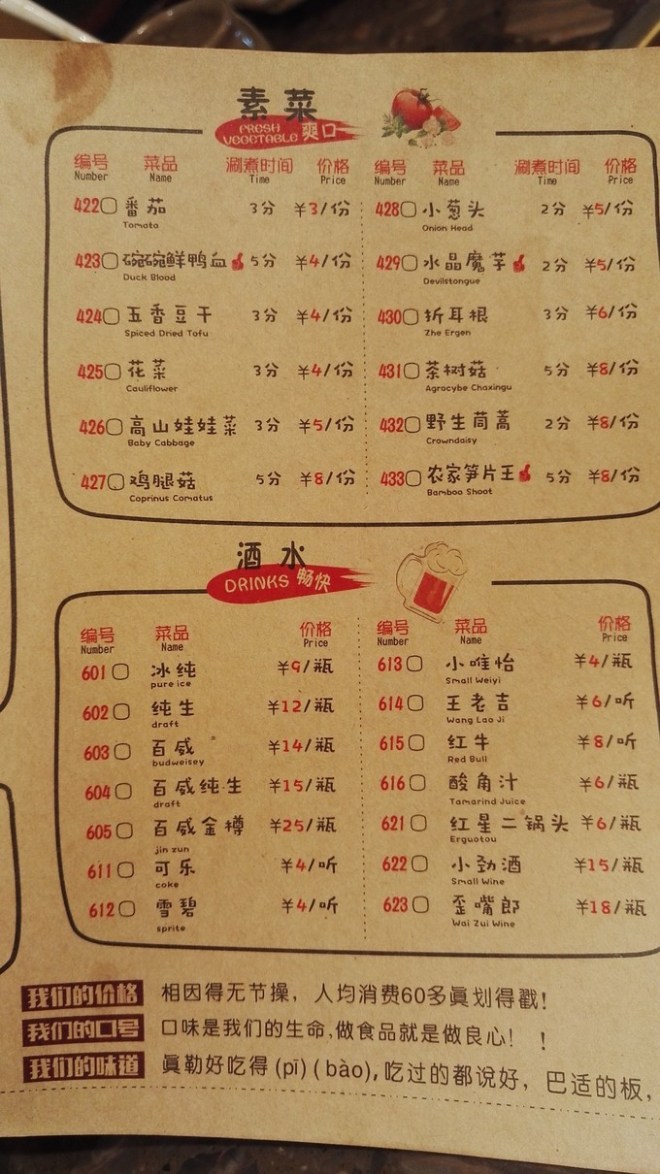 素菜
FRESH VEGETABLE 爽口
编号 菜品 涮煮时间 价格 编号 菜品 涮煮时间 价格
Number Name Time Price Number Name Time Price
422 番茄 3分 ¥3/份 428 小葱头 2分 ¥5/份
Tomato Onion Head
423 碗碗鲜鸭血 5分 ¥4/份 429 水晶魔芋 2分 ¥5/份
Duck Blood Devilstongue
424 五香豆干 3分 ¥4/份 430 折耳根 3分 ¥6/份
Spiced Dried Tofu Zhe Ergen
425 花菜 3分 ¥4/份 431 茶树菇 5分 ¥8/份
Cauliflower Agrocybe Chaxingu
426 高山娃娃菜 3分 ¥5/份 432 野生茼蒿 2分 ¥8/份
Baby Cabbage Crowndaisy
427 鸡腿菇 5分 ¥8/份 433 农家笋片王 5分 ¥8/份
Coprinus Comatus Bamboo Shoot
酒水
DRINKS 畅快
编号 菜品 价格 编号 菜品 价格
Number Name Price Number Name Price
601 冰纯 ¥9/瓶 613 小唯怡 ¥4/瓶
pure ice Small Weiyi
602 纯生 ¥12/瓶 614 王老吉 ¥6/听
draft Wang Lao Ji
603 百威 ¥14/瓶 615 红牛 ¥8/听
budweisey Red Bull
604 百威纯生 ¥15/瓶 616 酸角汁 ¥6/瓶
draft Tamarind Juice
605 百威金樽 ¥25/瓶 621 红星二锅头 ¥6/瓶
jin zun Erguotou
611 可乐 ¥4/听 622 小劲酒 ¥15/瓶
coke Small Wine
612 雪碧 ¥4/听 623 歪嘴郎 ¥18/瓶
sprite Wai Zui Wine
我们的价格 相因得无节操，人均消费60多眞划得戳!
我们的口号 口味是我们的生命,做食品就是做良心！！
我们的味道 眞勒好吃得(pī)(bào),吃过的都说好，巴适的板,